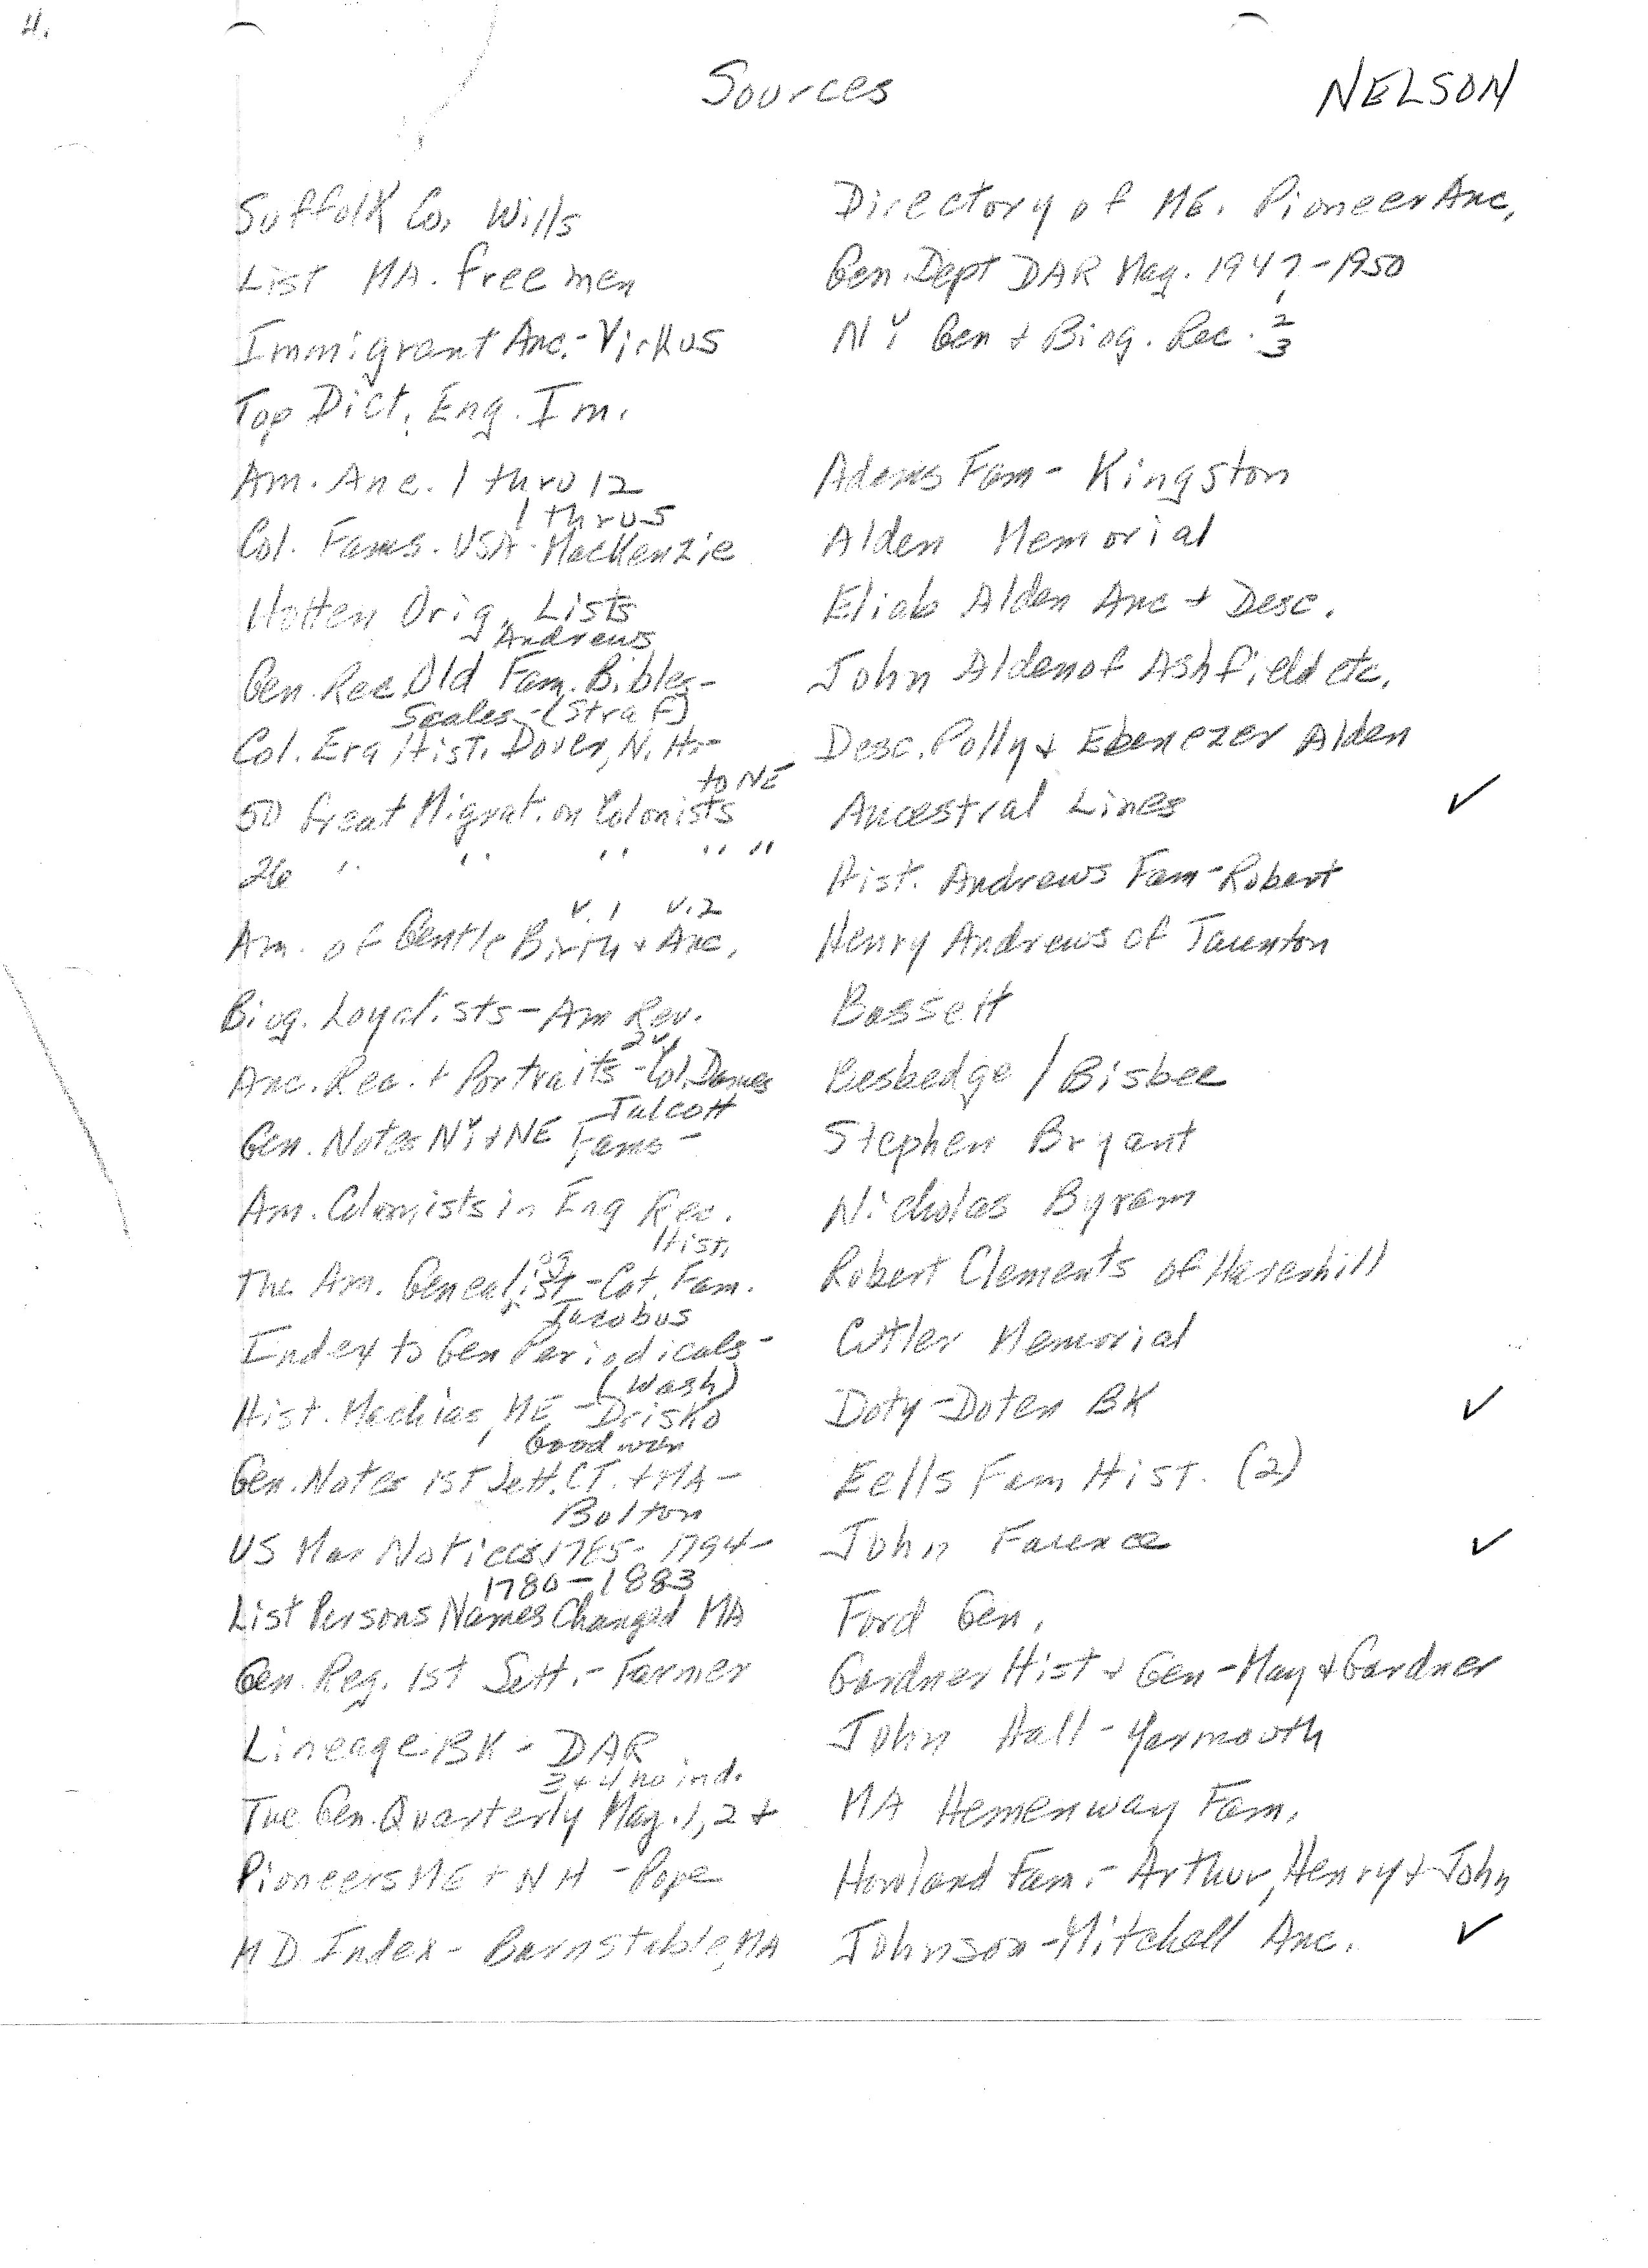 4.
Sources
NELSON
Suffolk Co. Wills
List MA. free men
Immigrant Anc.- Virkus
Top Dict. Eng. Im.
Am. Anc. 1 thru 12
1 thru 5
Col. Fams. USA - MacKenzie
Hotten Orig. Lists
Andrews
Gen. Rec Old Fam. Bibles -
Scales - (Straf)
Col. Era Hist. Dover, N.H. -
to NE
50 Great Migration Colonists
26 " " " " "
v. 1 v. 2
Am. of Gentle Birth & Anc.
Biog. Loyalists - Am Rev.
2v.
Anc. Rec. + Portraits - Col. Dames
Talcott
Gen. Notes NY + NE Fams -
Am. Colonists in Eng Rec.
Hist.
og
The Am. Genealist - Cat. Fam.
Jacobus
Index to Gen Periodicals -
(Wash)
Hist. Machias, ME - Drisko
Goodwin
Gen. Notes 1st Sett. CT. + MA -
Bolton
US Mar Notices 1785 - 1794 -
1780 - 1883
List Persons Names Changed MA
Gen. Reg. 1st Sett. - Farmer
Lineage BK - DAR
3 + 4 no ind.
The Gen. Quarterly Mag. 1, 2 +
Pioneers ME + NH - Pope
MD Index - Barnstable, MA
Directory of ME. Pioneer Anc.
Gen. Dept DAR Mag. 1947 - 1950
NY Gen + Biog. Rec. 1, 2 3
Adams Fam - Kingston
Alden Memorial
Eliab Alden Anc + Desc.
John Alden of Ashfield etc.
Desc. Polly + Ebenezer Alden
Ancestral Lines ✓
Hist. Andrews Fam - Robert
Henry Andrews of Taunton
Bassett
Besbedge / Bisbee
Stephen Bryant
Nicholas Byram
Robert Clements of Haverhill
Cutler Memorial
Doty - Doten BK ✓
Eells Fam Hist. (2)
John Faunce ✓
Ford Gen.
Gardner Hist + Gen - May + Gardner
John Hall - Yarmouth
MA Hemenway Fam.
Howland Fam. - Arthur, Henry + John
Johnson - Mitchell Anc. ✓